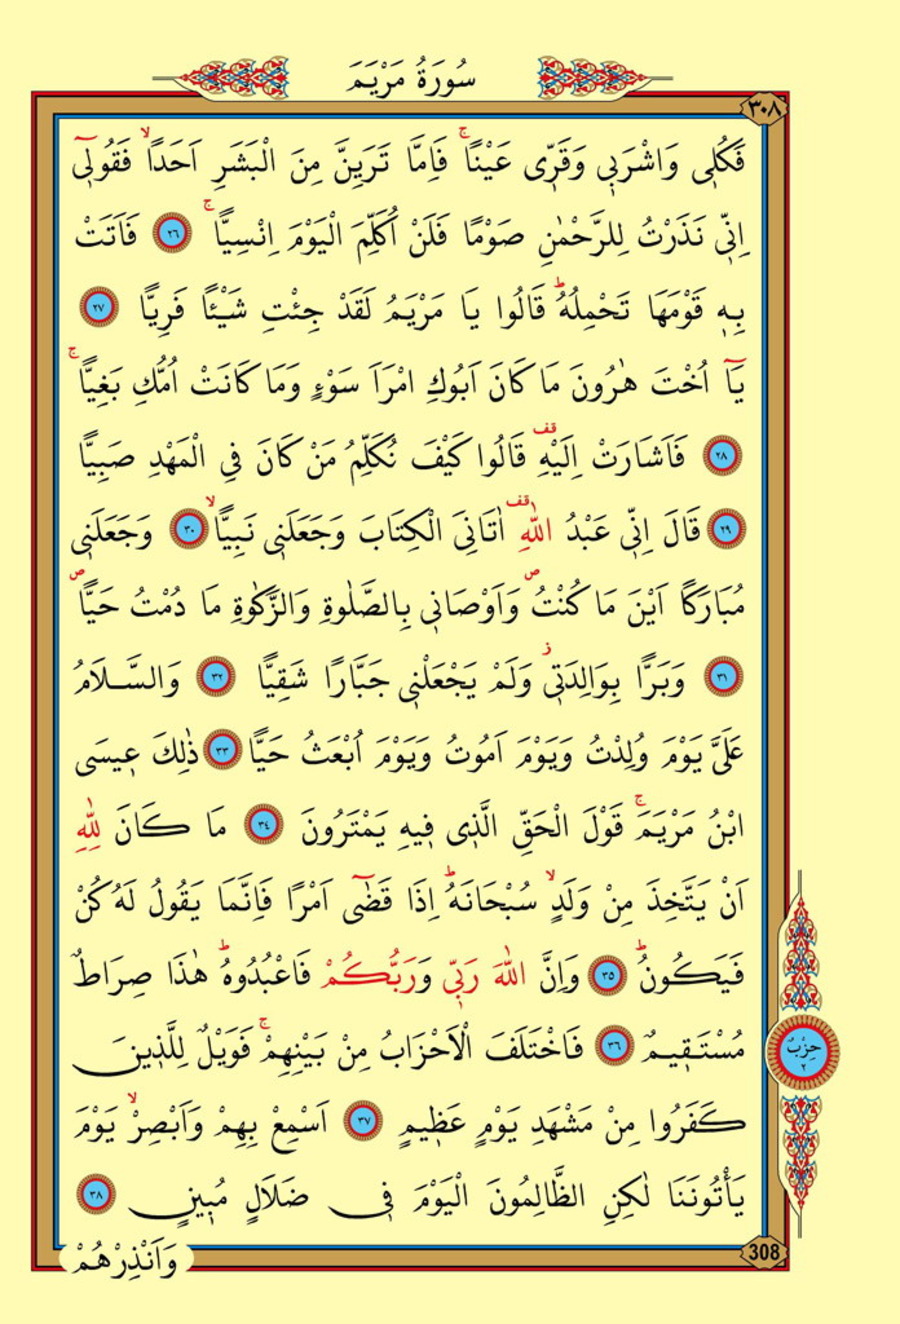 سُورَةُ مَرْيَمَ
٣٠٨
فَكُلٖى وَاشْرَبٖى وَقَرّٖى عَيْنًاۚ فَاِمَّا تَرَيِنَّ مِنَ الْبَشَرِ اَحَدًاۙ فَقُولٖٓى
اِنّٖى نَذَرْتُ لِلرَّحْمٰنِ صَوْمًا فَلَنْ اُكَلِّمَ الْيَوْمَ اِنْسِيًّاۚ ٢٦ فَاَتَتْ
بِهٖ قَوْمَهَا تَحْمِلُهُؕ قَالُوا يَا مَرْيَمُ لَقَدْ جِئْتِ شَيْـًٔا فَرِيًّا ٢٧
يَٓا اُخْتَ هٰرُونَ مَا كَانَ اَبُوكِ امْرَاَ سَوْءٍ وَمَا كَانَتْ اُمُّكِ بَغِيًّاۚ
٢٨ فَاَشَارَتْ اِلَيْهِ قف قَالُوا كَيْفَ نُكَلِّمُ مَنْ كَانَ فِى الْمَهْدِ صَبِيًّا
٢٩ قَالَ اِنّٖى عَبْدُ اللّٰهِ قف اٰتَانِىَ الْكِتَابَ وَجَعَلَنٖى نَبِيًّاۙ ٣٠ وَجَعَلَنٖى
مُبَارَكًا اَيْنَ مَا كُنْتُ ص وَاَوْصَانٖى بِالصَّلٰوةِ وَالزَّكٰوةِ مَا دُمْتُ حَيًّا ص
٣١ وَبَرًّا بِوَالِدَتٖى ز وَلَمْ يَجْعَلْنٖى جَبَّارًا شَقِيًّا ٣٢ وَالسَّلَامُ
عَلَىَّ يَوْمَ وُلِدْتُ وَيَوْمَ اَمُوتُ وَيَوْمَ اُبْعَثُ حَيًّا ٣٣ ذٰلِكَ عٖيسَى
ابْنُ مَرْيَمَۚ قَوْلَ الْحَقِّ الَّذٖى فٖيهِ يَمْتَرُونَ ٣٤ مَا كَانَ لِلّٰهِ
اَنْ يَتَّخِذَ مِنْ وَلَدٍۙ سُبْحَانَهُؕ اِذَا قَضٰٓى اَمْرًا فَاِنَّمَا يَقُولُ لَهُ كُنْ
فَيَكُونُؕ ٣٥ وَاِنَّ اللّٰهَ رَبّٖى وَرَبُّكُمْ فَاعْبُدُوهُؕ هٰذَا صِرَاطٌ
مُسْتَقٖيمٌ ٣٦ فَاخْتَلَفَ الْاَحْزَابُ مِنْ بَيْنِهِمْۚ فَوَيْلٌ لِلَّذٖينَ
كَفَرُوا مِنْ مَشْهَدِ يَوْمٍ عَظٖيمٍ ٣٧ اَسْمِعْ بِهِمْ وَاَبْصِرْۙ يَوْمَ
يَأْتُونَنَا لٰكِنِ الظَّالِمُونَ الْيَوْمَ فٖى ضَلَالٍ مُبٖينٍ ٣٨
حِزْبٌ
٢
308
وَاَنْذِرْهُمْ